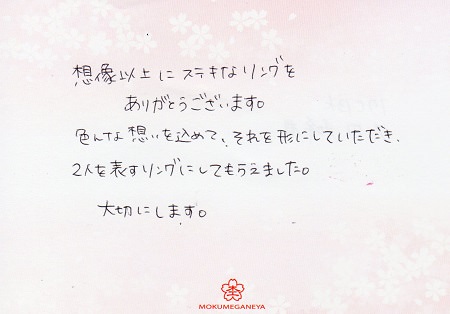 想像以上に ステキなリングを
ありがとうございます。
色んな想いを込めて、それを形にしていただき、
2人を表すリングにしてもらえました。
大切にします。
MOKUMEGANEYA